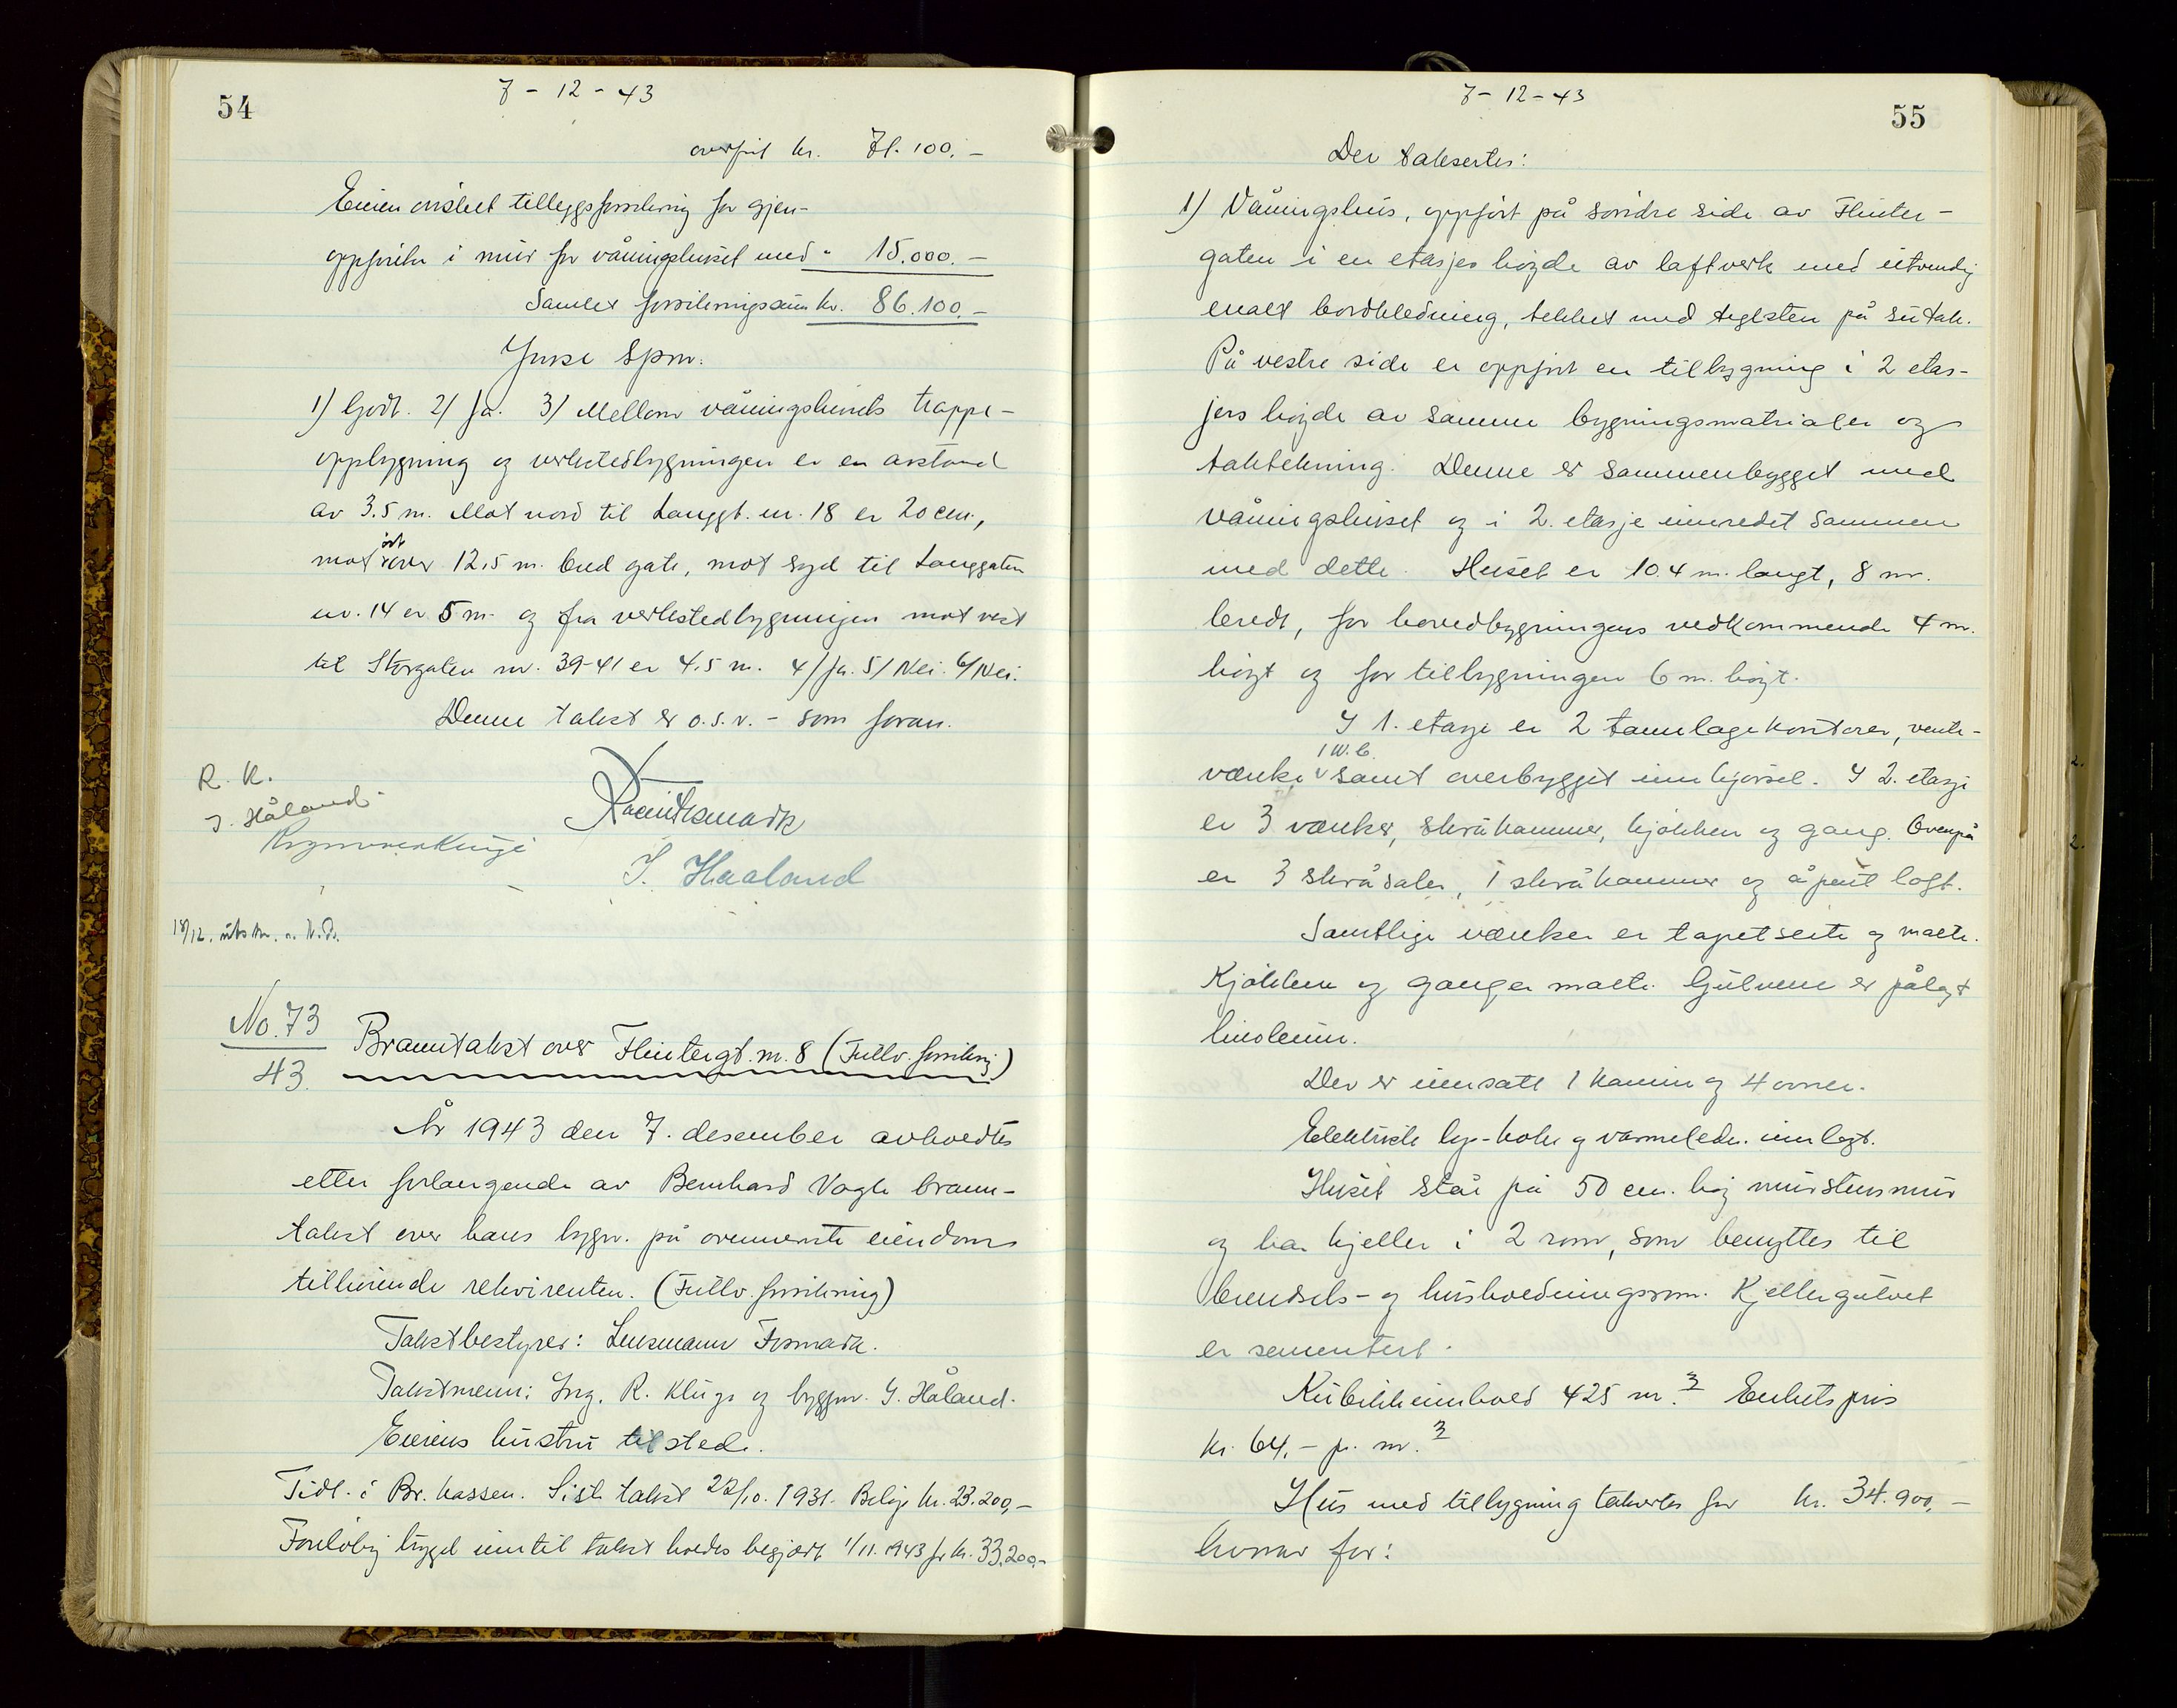 54
7 - 12 - 43
overført kr. 71.100,-
Eieren ønsket tilleggsforsikring for gjen-
oppførelse i mur for våningshuset med " 15.000.-
Samlet forsikringssum kr. 86.100.-
Ymse Spm.
1) Godt. 2) Ja. 3) Mellom våningshusets trappe-
oppbygning og verkstedbygningen er en avstand
av 3.5 m. Mot nord til Langgt. nr. 18 er 20 cm.,
mot øst over 12,5 m. bred gate, mot syd til Langgaten
nr. 14 er 5 m. og fra verkstedbygningen mot vest
til Storgaten nr. 39-41 er 4.5 m. 4/ Ja. 5/ Nei. 6/ Nei.
Denne takst er o.s.v. - som foran.
R. K.
J. Håland
J. Haaland
18/12.
No. 73
43.
Branntakst over Flintegt. nr. 8 (Fullv. forsikring)
År 1943 den 7. desember avholdtes
etter forlangende av Bernhard Vagle brann-
takst over hans bygn. på ovennevnte eiendom
tilhørende rekvirenten. (Fullv. forsikring)
Takstbestyrer: Lensmann Fosmark.
Takstmenn: Ing. R. Kluge og byggm. J. Håland.
Eierens hustru tilstede.
Tidl. i Br. kassen. Siste takst 22/10. 1931. Beløp kr. 23.200,-
Foreløbig trygd inntil takst holdes begjært 1/11. 1943 for kr. 33.200,-
7 - 12 - 43
55
Der takseres:
1) Våningshus, oppført på søndre side av Flinte-
gaten i en etasjes høyde av laftverk med utvendig
enkelt bordkledning, tekket med teglsten på sutak.
På vestre side er oppført en tilbygning i 2 etas-
jers høyde av samme bygningsmatrialer og
taktekning. Denne er sammenbygget med
våningshuset og i 2. etasje innredet sammen
med dette. Huset er 10.4 m. langt, 8 m.
bredt, for hovedbygningens vedkommende 4 m.
høyt og for tilbygningen 6 m. høyt.
I 1. etasje er 2 tannlegekontorer, vente-
1 W.C.
værelse samt overbygget innkjørsel. I 2. etasje
er 3 værelser, skråkammer, kjøkken og gang. Ovenpå
er 3 skråsaler, 1 skråkammer og åpent loft.
Samtlige værelser er tapetserte og malte.
Kjøkken og ganger malte. Gulvene er pålagt
linoleum.
Der er innsatt 1 kamin og 4 ovner.
Elektrisk lys- koke og varmeledn. innlagt.
Huset står på 50 cm. høy murstensmur
og har kjeller i 2 rom, som benyttes til
brendsels- og husholdningsrom. Kjellergulvet
er sementert.
Kubikkinnhold 425 m.3 Enhetspris
kr. 64,- pr. m.3
Hus med tilbygning takseres for kr. 34.900,-
hvorav for: